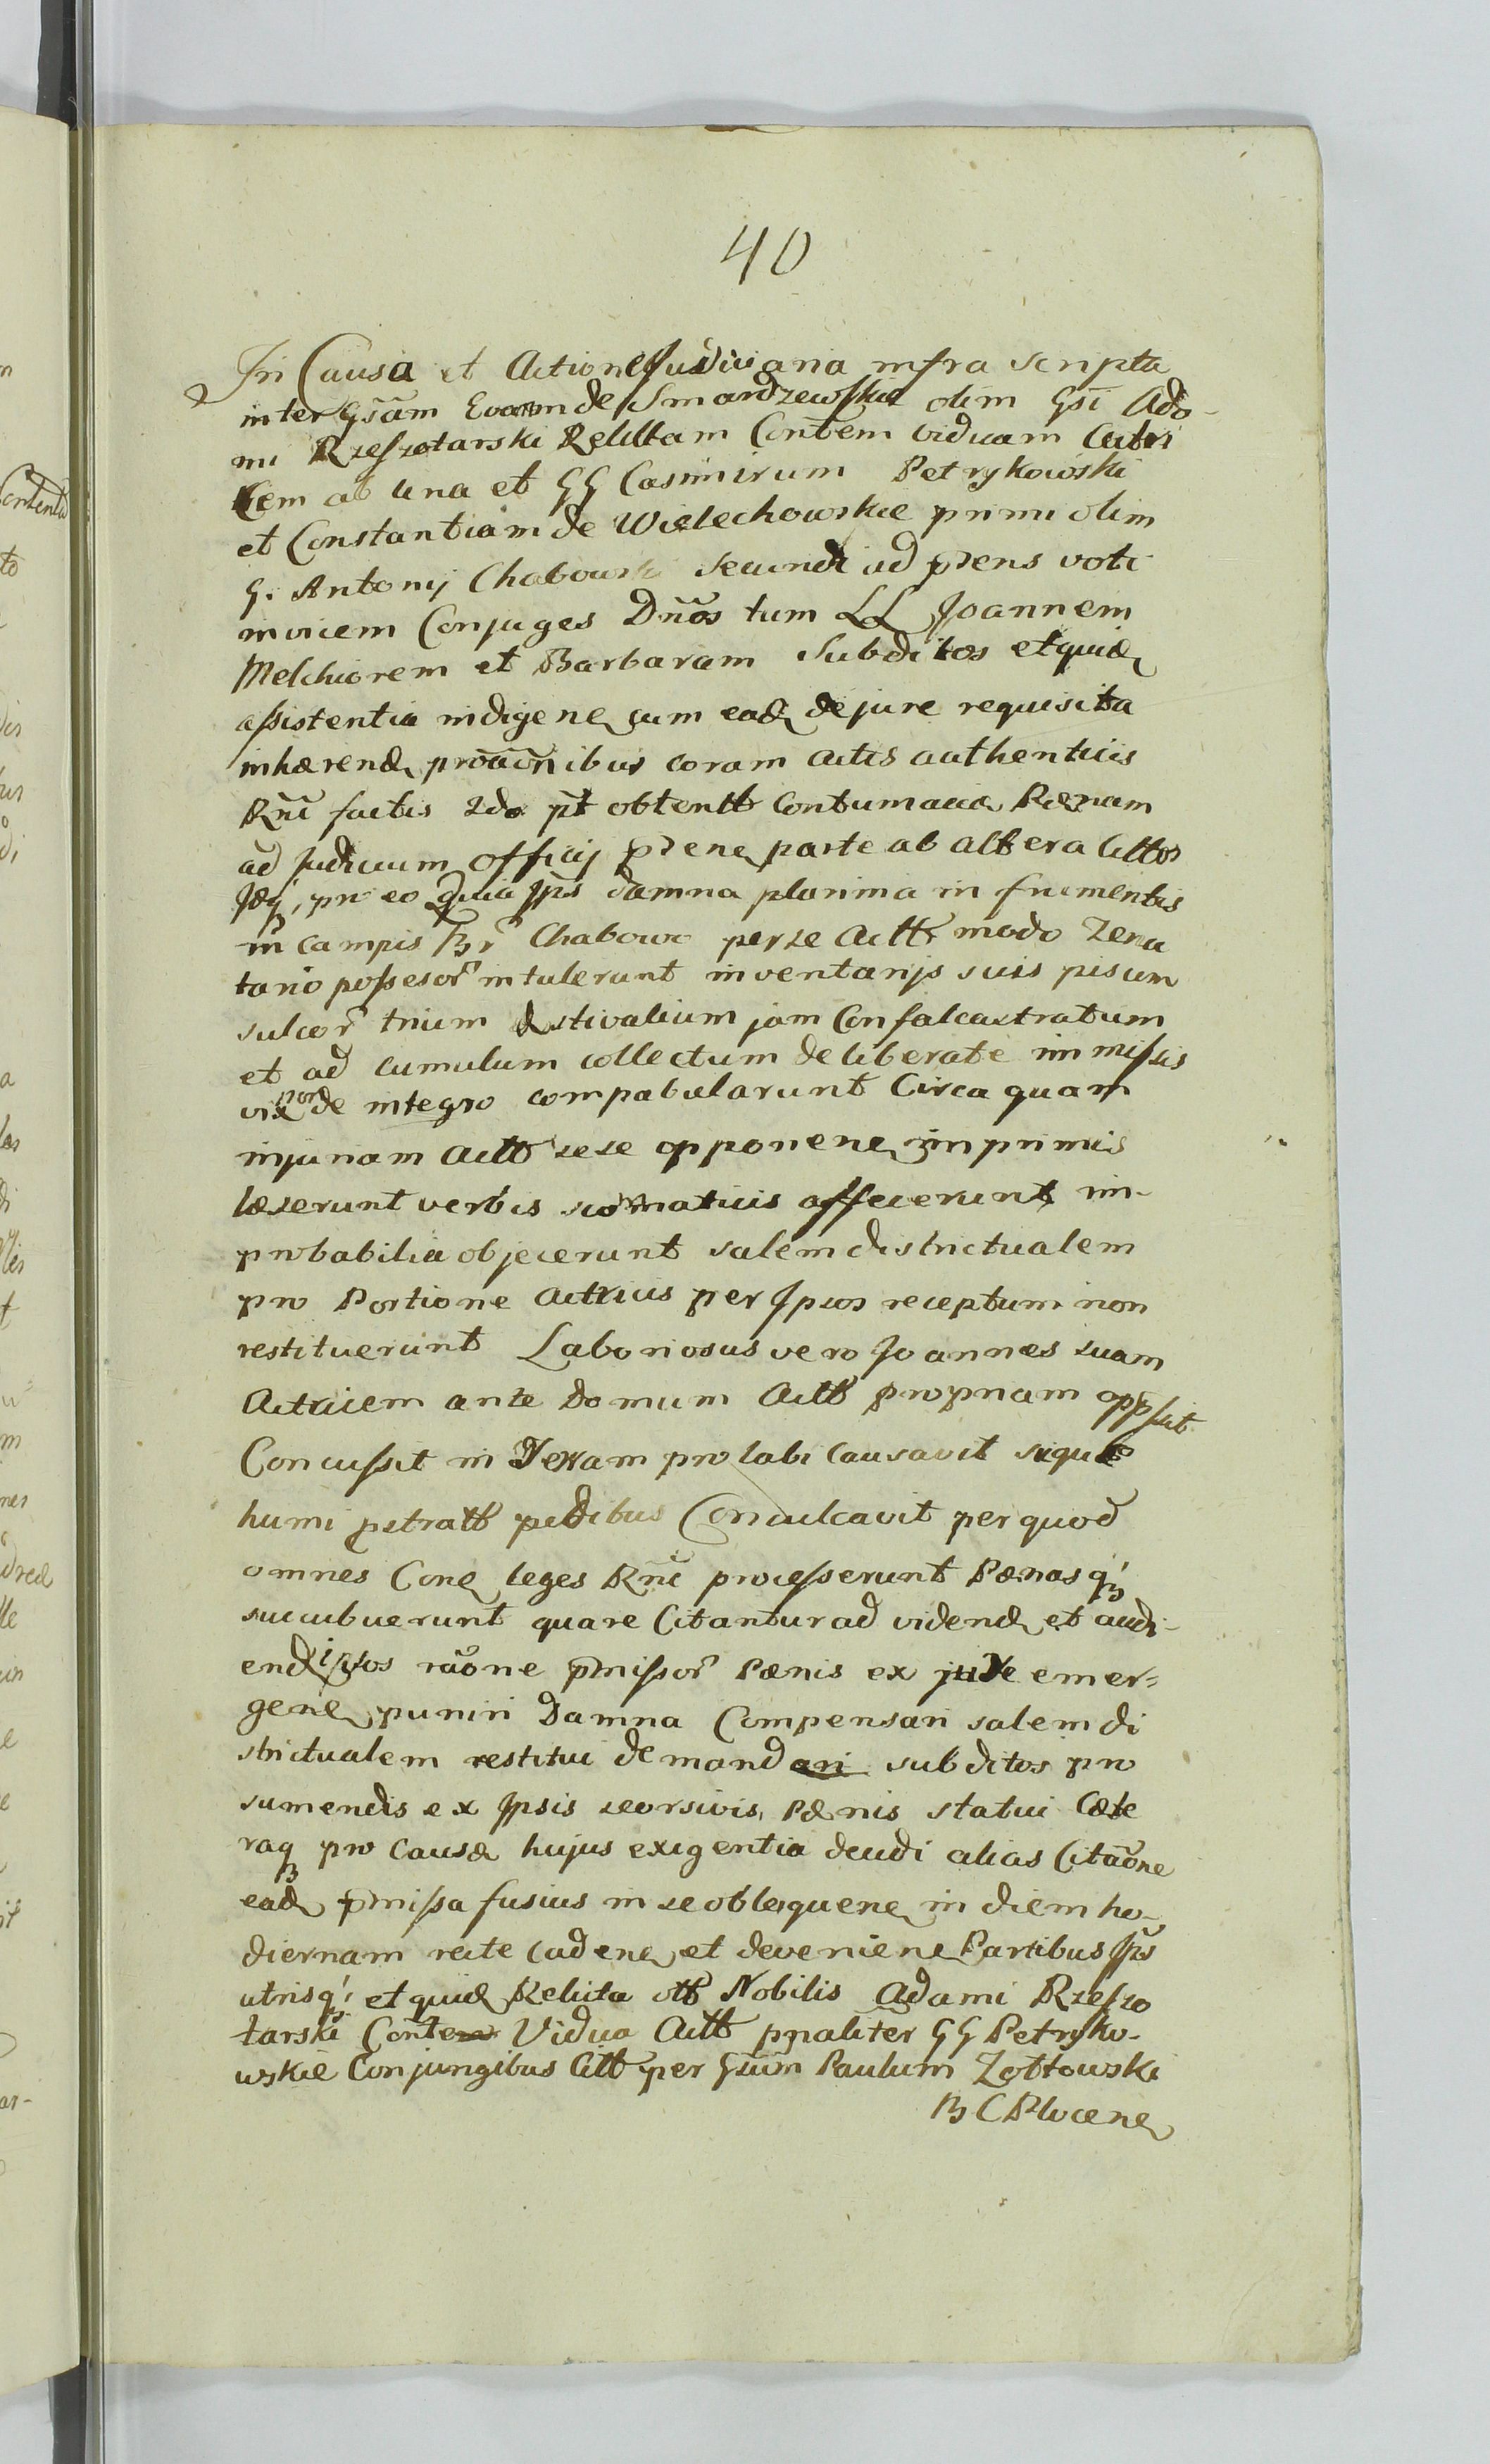 40
In Causa et Actione Judiciaria infra scripta
inter Gsam Evam de Smardzewskie olim Gsi Ada-
mi Rzeszotarski Relictam Contem viduam Actri
cem ab una et GG Casimirum Petrykowski
et Constantiam de Wielechowskie primi olim
G. Antonij Chabowski secundi ad prens voti
invicem Conjuges Dnos tum LL Joannem
Melchiorem et Barbaram Subditos et quid
assistentia indigene cum ead de jure requisita
inhærend proaonibus coram actis authenticis
Rni factis 2do pt obtentt Contumaciæ Pænam
ad Judicium Officij prene parte ab altera Cittos
Idq, pro eo quia Ips damna plurima in frumentis
in campis Br Chabowo per se Actt modo
tario possesor intulerunt inventarijs suis pisum
sulcor trium Æstivalium jam Confalcastratum
et ad cumulum collectum deliberate immissis
de integro compabularunt Circa quam
injuriam Actt sese opponene imprimis
læserunt verbis scomaticis affecerunt im-
probabilia objecerunt salem districtualem
pro Portione Actricis per Ipsos receptum non
restituerunt Laboriosus vero Joannes suam
Actricem ante Domum Actt propriam
Concussit in Terram prolabi causavit sicque
humi pstratt pedibus Conculcavit per quod
omnes Cone leges Rni processerunt Pænasq,
succubuerunt quare Citantur ad vidend et audi-
end ipsos raone pmissor Pænis ex jure emer-
gene puniri Damna Compensari salem di
strictualem restitui demandari subditos pro
sumendis ex Ipsis seorsivis Pænis statui Cæte
raq pro Causæ hujus exigentia decidi alias Citaone
ead pmissa fusius in se obloquene in diem ho-
diernam recte cadene et deveniene Partibus Ips
utrisq, et quid Relicta ott Nobilis Adami Rzeszo
tarski Conte Vidua Actt prnaliter GG Petryko-
wskie Conjungibus Citt per Gsum Paulum Zołtowski
B C Plocene